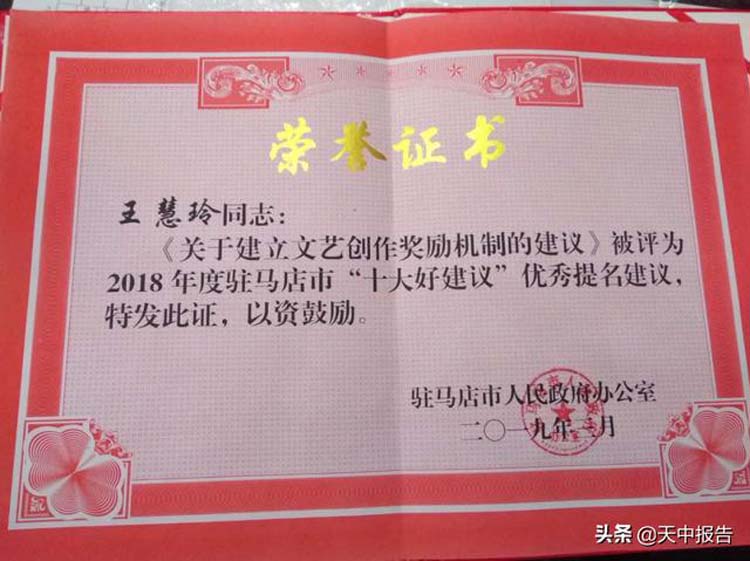 荣誉证书
王慧玲同志：
《关于建立文艺创作奖励机制的建议》被评为
2018年度驻马店市“十大好建议”优秀提名建议，
特发此证，以资鼓励。
驻马店市人民政府办公室
二〇一九年三月
头条@天中报告